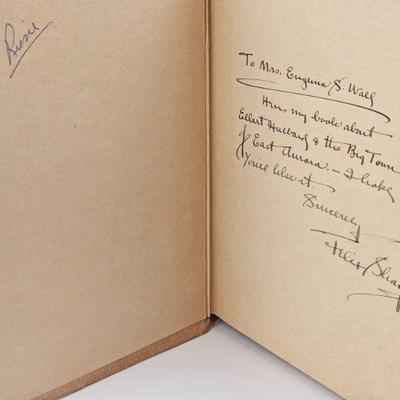 Rosie
To Mrs. Eugenia S. Wall
Here's my book about
Elbert Hubbard & the Big Town
of East Aurora - I hope
You'll like it.
Sincerely
Felix Shay